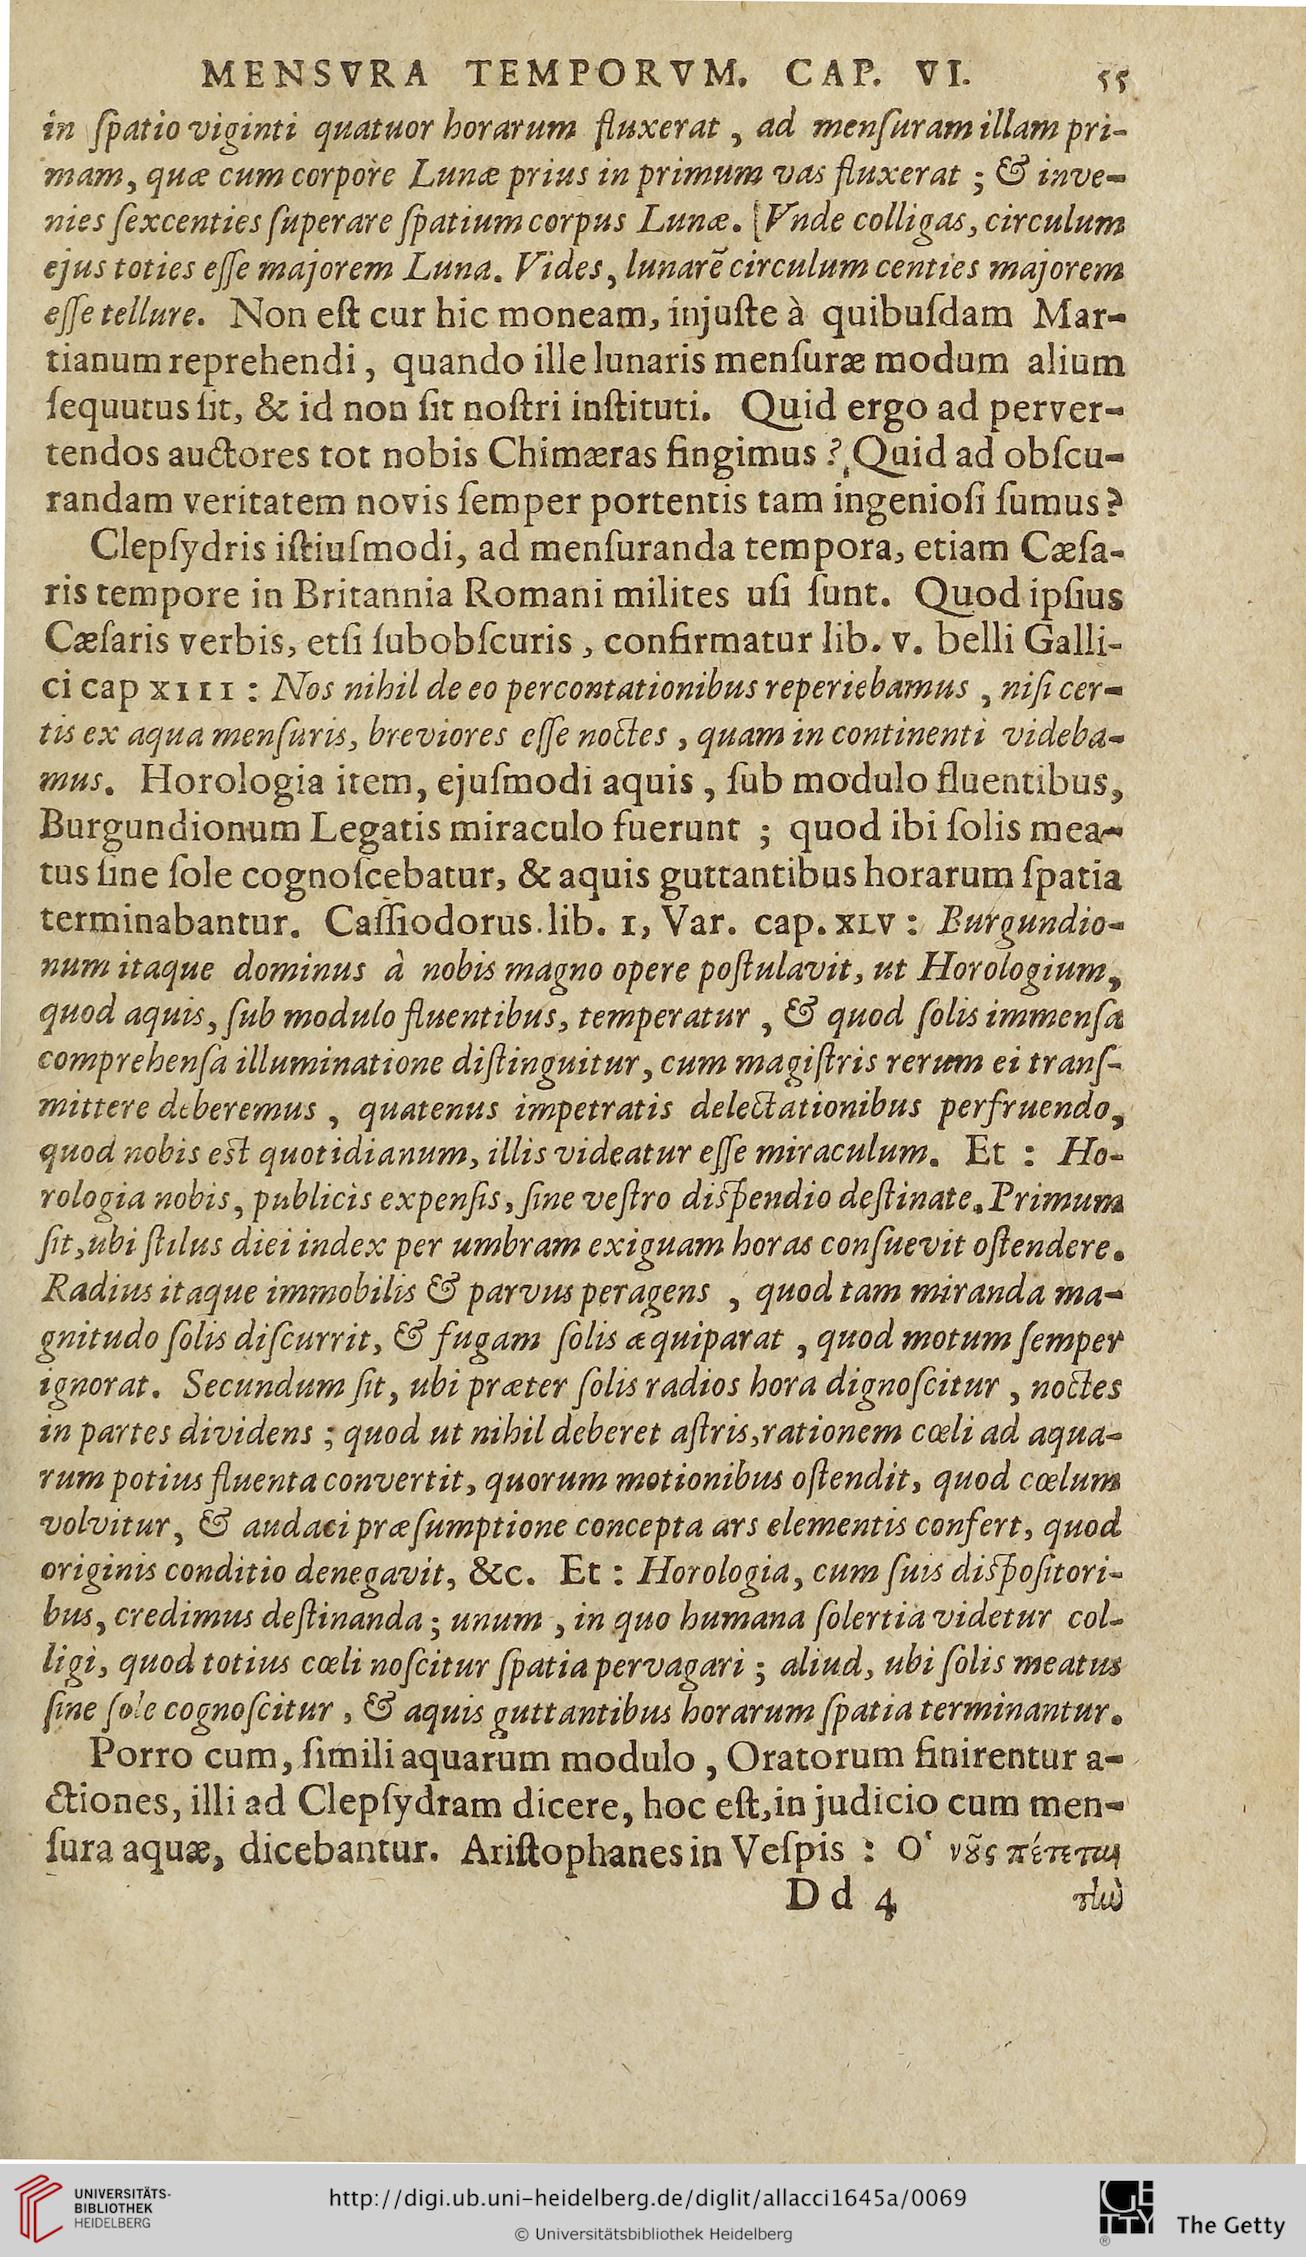 MENSVRA TEMPORVM. CAP. VI. 55
in ſpatio viginti quatuor horarum fluxerat, ad menſuram illam pri-
mam, quæ cum corpore Lunæ prius in primum vas fluxerat; & inve-
nies ſexcenties ſuperare ſpatium corpus Lunæ. [Vnde colligas, circulum
ejus toties eſſe majorem Luna. Vides, lunarẽ circulum centies majorem
eſſe tellure. Non eſt cur hic moneam, injuſte à quibuſdam Mar-
tianum reprehendi, quando ille lunaris menſuræ modum alium
ſequutus ſit, & id non ſit noſtri inſtituti. Quid ergo ad perver-
tendos auctores tot nobis Chimæras fingimus? Quid ad obſcu-
randam veritatem novis ſemper portentis tam ingenioſi ſumus?
Clepſydris iſtiuſmodi, ad menſuranda tempora, etiam Cæſa-
ris tempore in Britannia Romani milites uſi ſunt. Quod ipſius
Cæſaris verbis, etſi ſubobſcuris, confirmatur lib. v. belli Galli-
ci cap XIII: Nos nihil de eo percontationibus reperiebamus, niſi cer-
tis ex aqua menſuris, breviores eſſe noctes, quam in continenti videba-
mus. Horologia item, ejuſmodi aquis, ſub modulo fluentibus,
Burgundionum Legatis miraculo fuerunt; quod ibi ſolis mea-
tus ſine ſole cognoſcebatur, & aquis guttantibus horarum ſpatia
terminabantur. Caſſiodorus lib. I, Var. cap. XLV: Burgundio-
num itaque dominus à nobis magno opere poſtulavit, ut Horologium,
quod aquis, ſub modulo fluentibus, temperatur, & quod ſolis immenſa
comprehenſa illuminatione diſtinguitur, cum magiſtris rerum ei tranſ-
mittere deberemus, quatenus impetratis delectationibus perfruendo,
quod nobis eſt quotidianum, illis videatur eſſe miraculum. Et: Ho-
rologia nobis, publicis expenſis, ſine veſtro diſpendio deſtinate. Primum
ſit, ubi ſtilus diei index per umbram exiguam horas conſuevit oſtendere.
Radius itaque immobilis & parvus peragens, quod tam miranda ma-
gnitudo ſolis diſcurrit, & fugam ſolis æquiparat, quod motum ſemper
ignorat. Secundum ſit, ubi præter ſolis radios hora dignoſcitur, noctes
in partes dividens; quod ut nihil deberet aſtris, rationem cœli ad aqua-
rum potius fluenta convertit, quorum motionibus oſtendit, quod cœlum
volvitur, & audaci præſumptione concepta ars elementis confert, quod
originis conditio denegavit, &c. Et: Horologia, cum ſuis diſpoſitori-
bus, credimus deſtinanda; unum, in quo humana ſolertia videtur col-
ligi, quod totius cœli noſcitur ſpatia pervagari; aliud, ubi ſolis meatus
ſine ſole cognoſcitur, & aquis guttantibus horarum ſpatia terminantur.
Porro cum, ſimili aquarum modulo, Oratorum finirentur a-
ctiones, illi ad Clepſydram dicere, hoc eſt, in judicio cum men-
ſura aquæ, dicebantur. Ariſtophanes in Veſpis: Ο῾ νοῦς πέτεται
Dd 4 τὴν
UNIVERSITÄTS-
BIBLIOTHEK
HEIDELBERG
http://digi.ub.uni-heidelberg.de/diglit/allacci1645a/0069
© Universitätsbibliothek Heidelberg
GETTY
®
The Getty